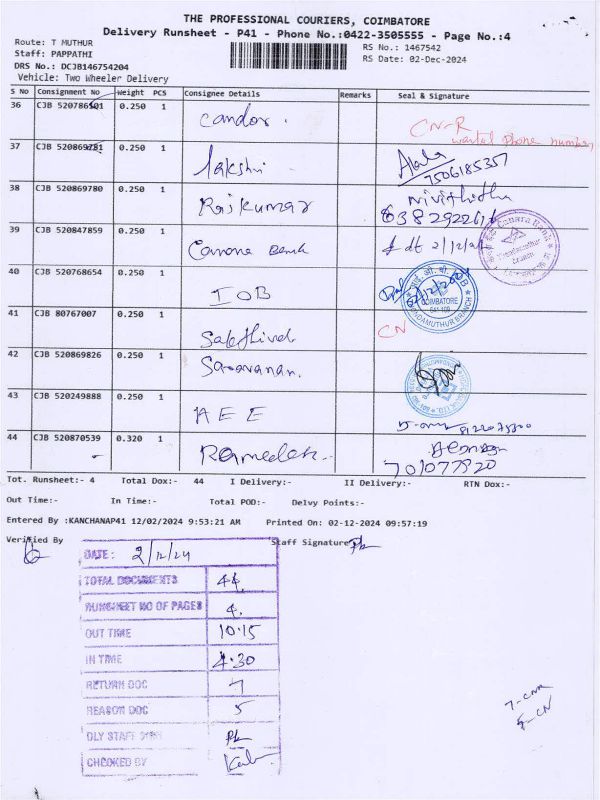 THE PROFESSIONAL COURIERS, COIMBATORE
Delivery Runsheet - P41 - Phone No.:0422-3505555 - Page No.:4
Route: T MUTHUR
RS No.: 1467542
Staff: PAPPATHI
RS Date: 02-Dec-2024
DRS No.: DCJB146754204
Vehicle: Two Wheeler Delivery
S No Consignment No Weight PCS Consignee Details Remarks Seal & Signature
36 CJB 520786501 0.250 1 Candor. CN-R
phone number
37 CJB 520869781 0.250 1 lakshmi
7506185357
38 CJB 520869780 0.250 1 Rajkumar
39 CJB 520847859 0.250 1 Canara Bank 2/12/24
Canara Bank
Branch
40 CJB 520768654 0.250 1 IOB
COIMBATORE
641 109
41 CJB 80767007 0.250 1 Sakthivel CN
42 CJB 520869826 0.250 1 Saravanan.
43 CJB 520249888 0.250 1 AEE
44 CJB 520870539 0.320 1
Tot. Runsheet:- 4 Total Dox:- 44 I Delivery:- II Delivery:- RTN Dox:-
Out Time:- In Time:- Total POD:- Delvy Points:-
Entered By :KANCHANAP41 12/02/2024 9:53:21 AM Printed On: 02-12-2024 09:57:19
Verified By Staff Signature
DATE: 2/12/24
TOTAL DOCUMENTS 44
RUNSHEET NO OF PAGES 4.
OUT TIME 10:15
IN TIME 4:30
RETURN DOC 7
REASON DOC 5
DLY STAFF SIGN
CHECKED BY
5-CN